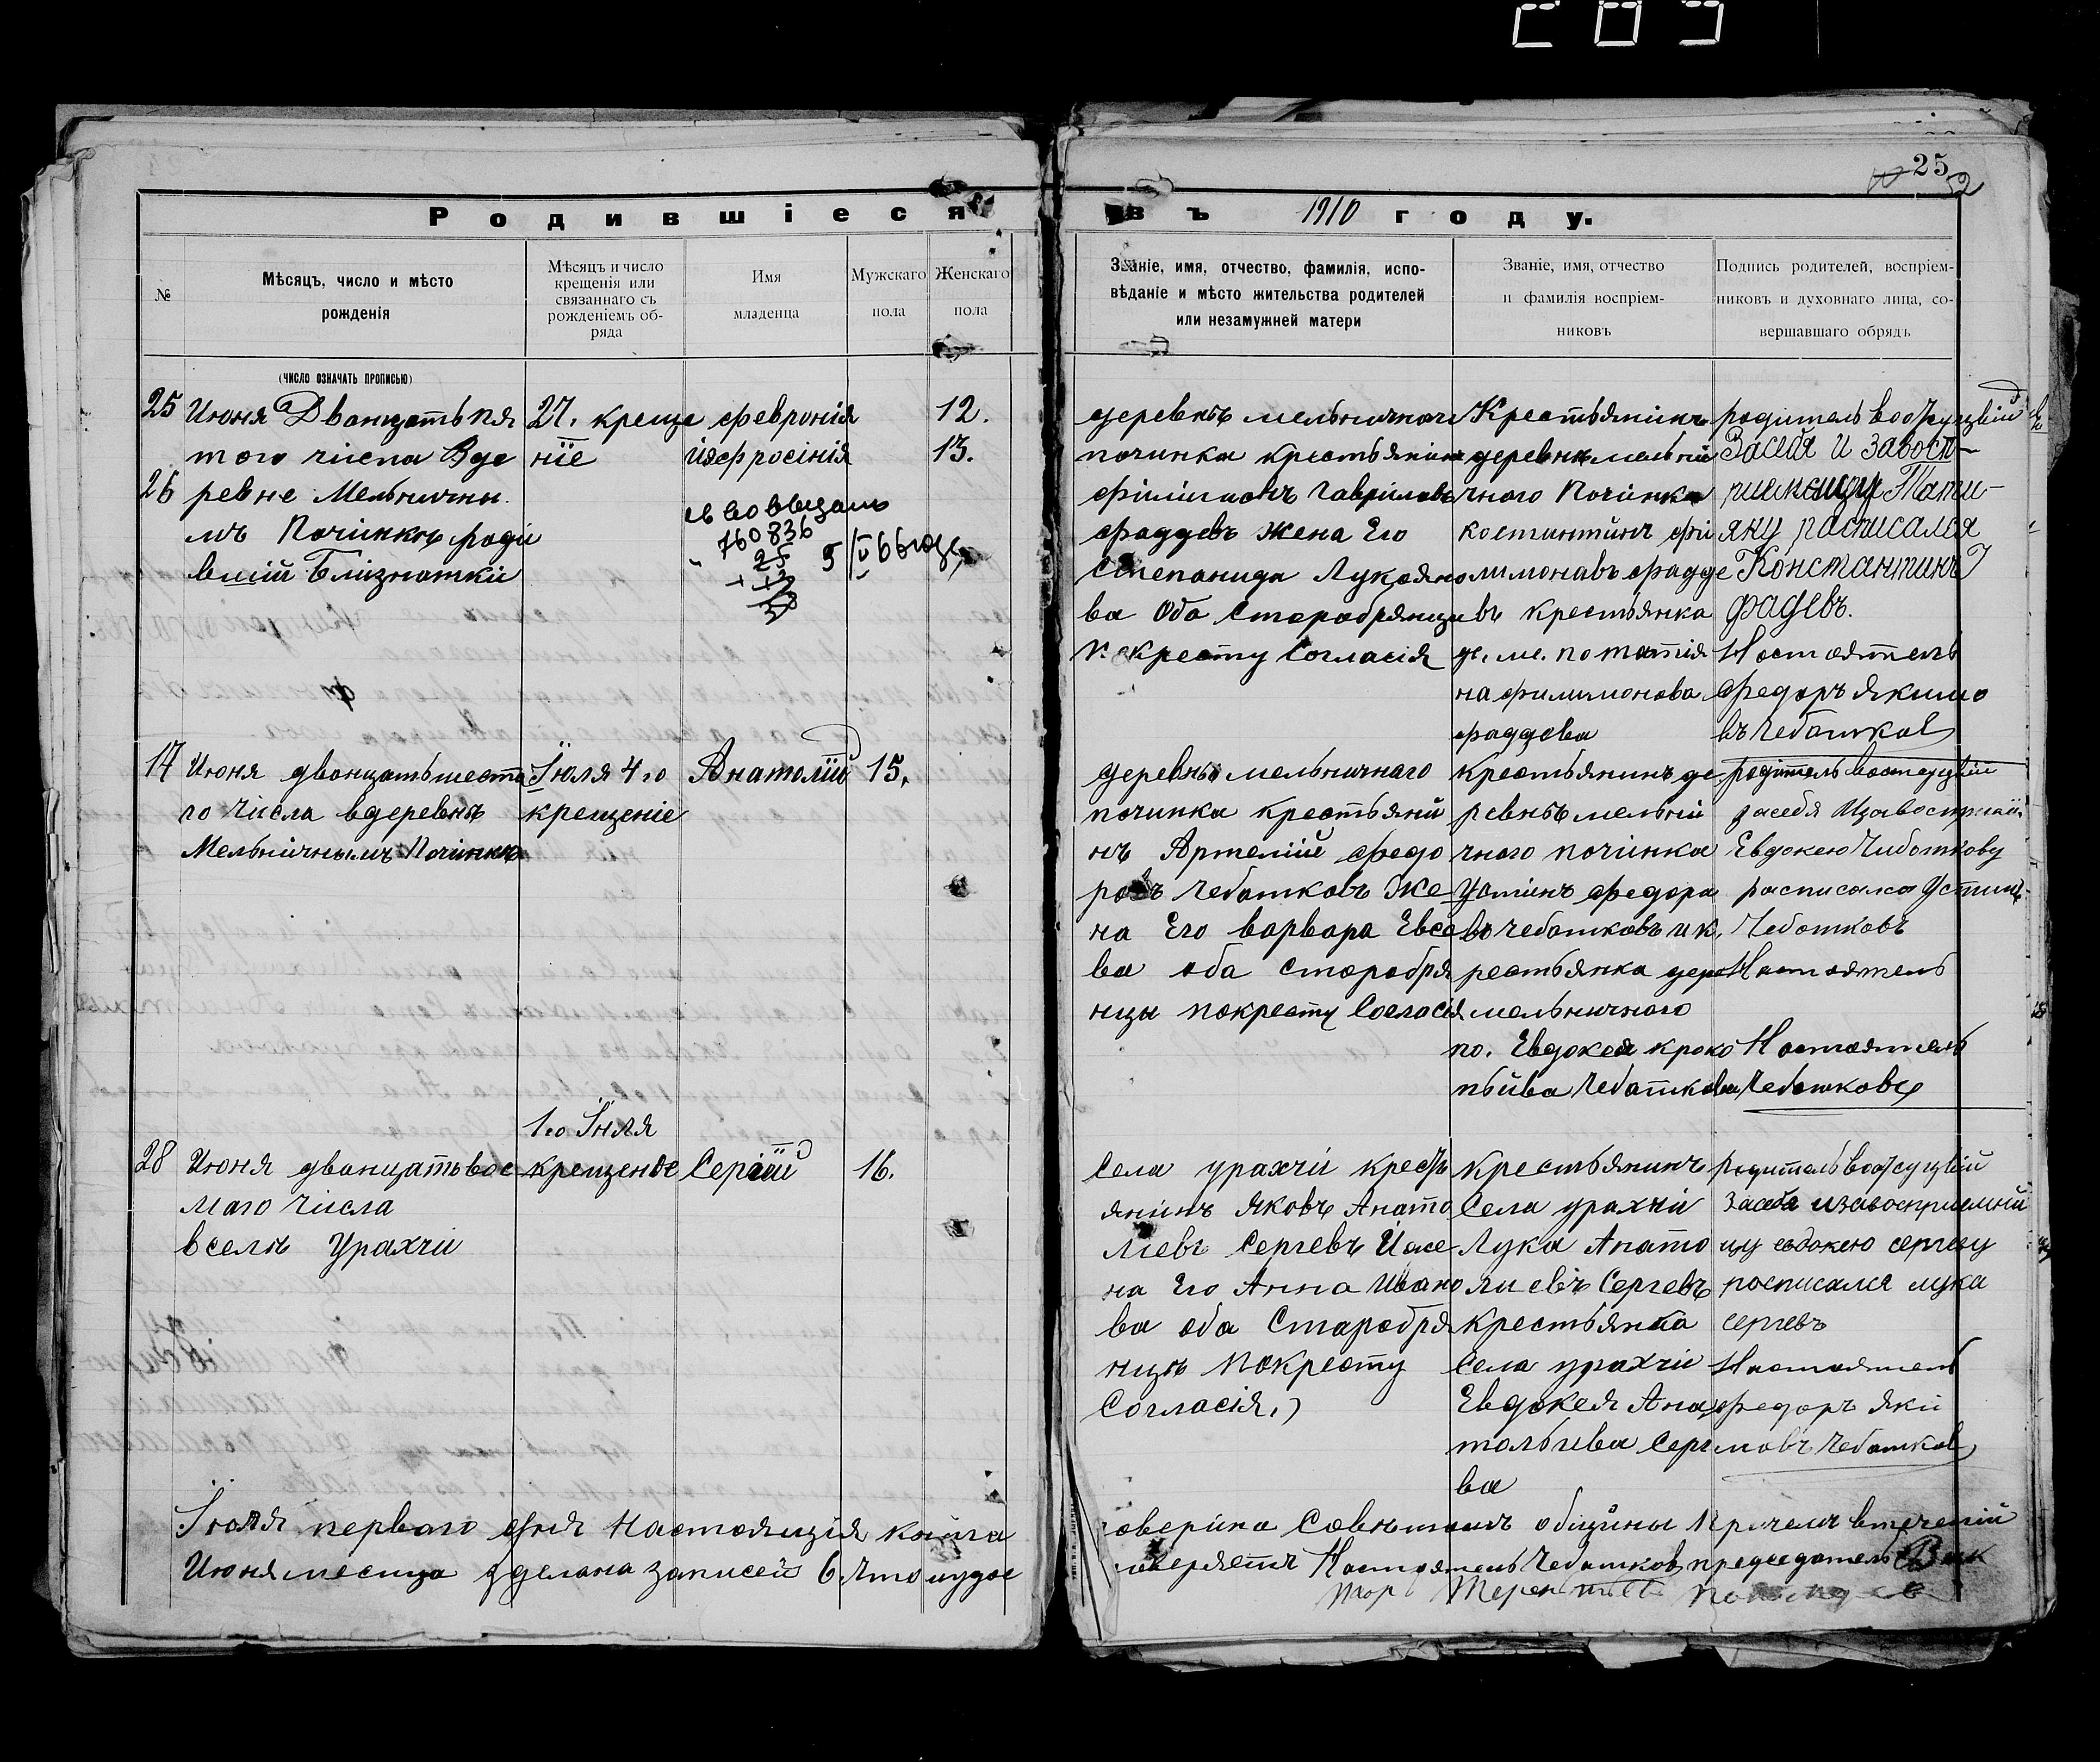 25
Родившіеся въ 1910 году.
№
Мѣсяцъ, число и мѣсто
рожденія
Мѣсяцъ и число
крещенія или
связаннаго съ
рожденіемъ об-
ряда
Имя
младенца
Мужскаго
пола
Женскаго
пола
Званіе, имя, отчество, фамилія, испо-
вѣданіе и мѣсто жительства родителей
или незамужней матери
Званіе, имя, отчество
и фамилія воспріем-
никовъ
Подпись родителей, воспріем-
никовъ и духовнаго лица, со-
вершавшаго обрядъ
(число означать прописью)
25
26
Июня Дванцать пя
того числа Вде
ревне Мельничны
мъ Починкѣ роди
вшій Близнатки
27. креще
ніе
февронія
ифросінія
760836
25
12.
13.
деревнѣ мельничнаго
починка крестьянин
филіпповъ Гавриловъ
фаддевъ жена Его
Степанида Лукояно
ва Оба старобрянцы
покресту Согласія
Крестьянинъ
деревнѣ мельни
чного Починка
костинтинъ фи
лимонавъ фадде
въ крестьянка
де. ме. по татія
на филимонова
фаддева
родитель
Засебя и завосп-
риемницу Тати-
яну расписался
Константинъ
Фадевъ.
Настоятель
федоръ якимо
въ Чебатков
17
Июня дванцать шесто
го числа вдеревнѣ
Мельничнымъ Починкѣ
Іюля 4го
крещеніе
Анатолій
15.
деревнѣ мельничнаго
починка крестьяни
нъ Артемій федо
ровъ Чебатковъ Же
на Его варвара Евсе
ва оба старобря
нцы покресту Согласія
крестьянинъ де
ревнѣ мельни
чного починка
Устинъ федоро
во Чебатковъ и к.
рестьянка дере
мельничного
по. Евдокея проко
пьйва Чебаткова
родитель
засебя
Евдокею Чибаткову
расписалса Устинъ
Чебатковъ
Настоятель
Настоятель
Чебатковъ
28
Июня дванцать вос
маго числа
вселѣ Урахчи
1го Іюля
крещение
Сергій
16.
Села урахчи крест
янинъ Яковъ Анато
лиевъ Сергевъ Иже
на Его Анна Ивано
ва оба Старобря
нцы покресту
Согласія.
крестьянинъ
Села урахчи
Лука Анато
лиевъ Сергевъ
крестьянка
Села урахчи
Евдокея Ана
тольива Серге
ва
родитель
засебя изавосприемни
цу евдокею сергеву
росписался лука
сергевъ
Настоятель
федоръ яки
мовъ Чебатков
Іюля перваго дня Настоящія книга
Июня месица зделана записей 6
оверина Совѣтомъ общины
Настоятель Чебатков председатель Вик
тор Терентьев